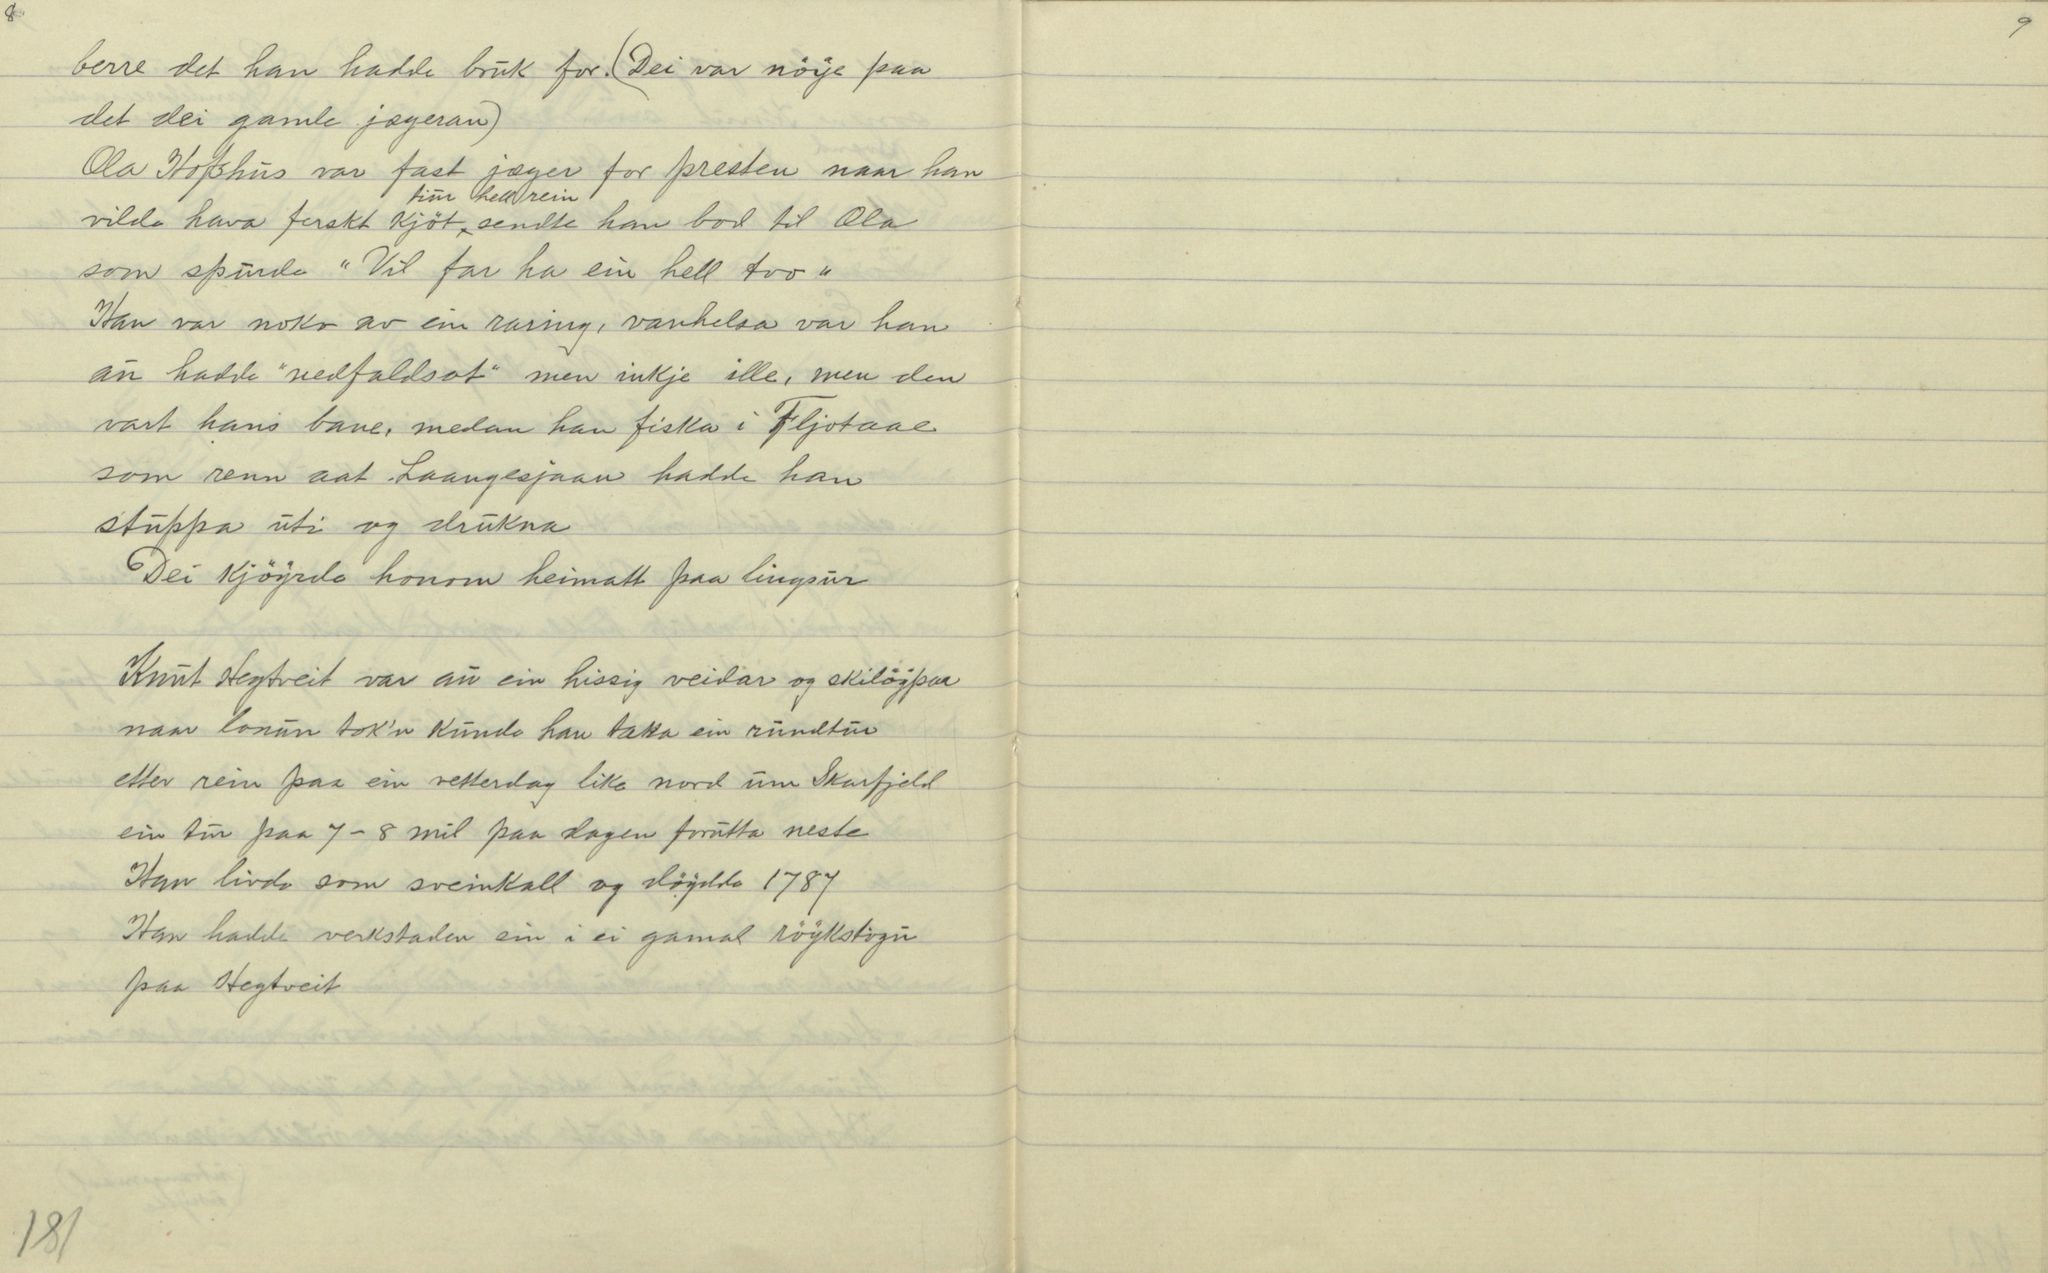 8
berre det han hadde bruk for. (Dei var nöije paa
det dei gamle jægeran)
Ola Hofshus var fast jæger for presten naar han
tiur hell rein
vilde hava ferskt kjöt, sendte han bod til Ola
som spurde "Vil far ha ein hell tvo"
Han var noko av ein raring, vanhelsa var han
au hadde "nedfaldsot" men inkje ille, men den
vart hans bane, medan han fiska i Fljotaae
som renn aat Laangesjaan hadde han
stuppa uti og drukna
Dei kjöyrde honom heimatt paa lingsur
Knut Hegtveit var au ein hissig veidar og skilöypar
naar lonun tok'n kunde han taka ein rundtur
etter rein paa ein vetterdag like nord um Skarfjeld
ein tur paa 7-8 mil paa dagen forutta neste
Han livde som sveinkall og döydde 1787
Han hadde verkstaden sin i ei gamal röykstogu
paa Hegtveit
181
9